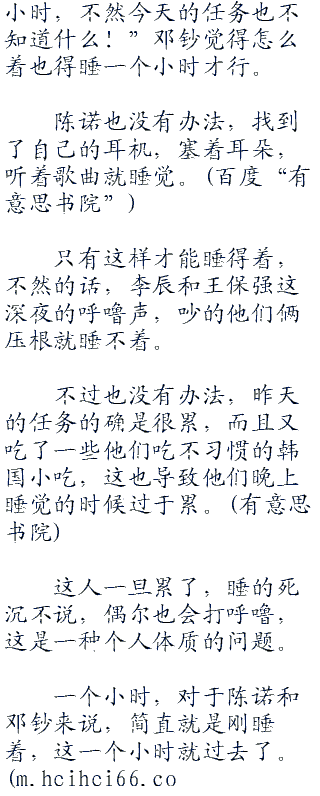 小时，不然今天的任务也不
知道什么！”邓钞觉得怎么
着也得睡一个小时才行。
陈诺也没有办法，找到
了自己的耳机，塞着耳朵，
听着歌曲就睡觉。(百度“有
意思书院”)
只有这样才能睡得着，
不然的话，李辰和王保强这
深夜的呼噜声，吵的他们俩
压根就睡不着。
不过也没有办法，昨天
的任务的确是很累，而且又
吃了一些他们吃不习惯的韩
国小吃，这也导致他们晚上
睡觉的时候过于累。(有意思
书院)
这人一旦累了，睡的死
沉不说，偶尔也会打呼噜，
这是一种个人体质的问题。
一个小时，对于陈诺和
邓钞来说，简直就是刚睡
着，这一个小时就过去了。
(m.hcihci66.co